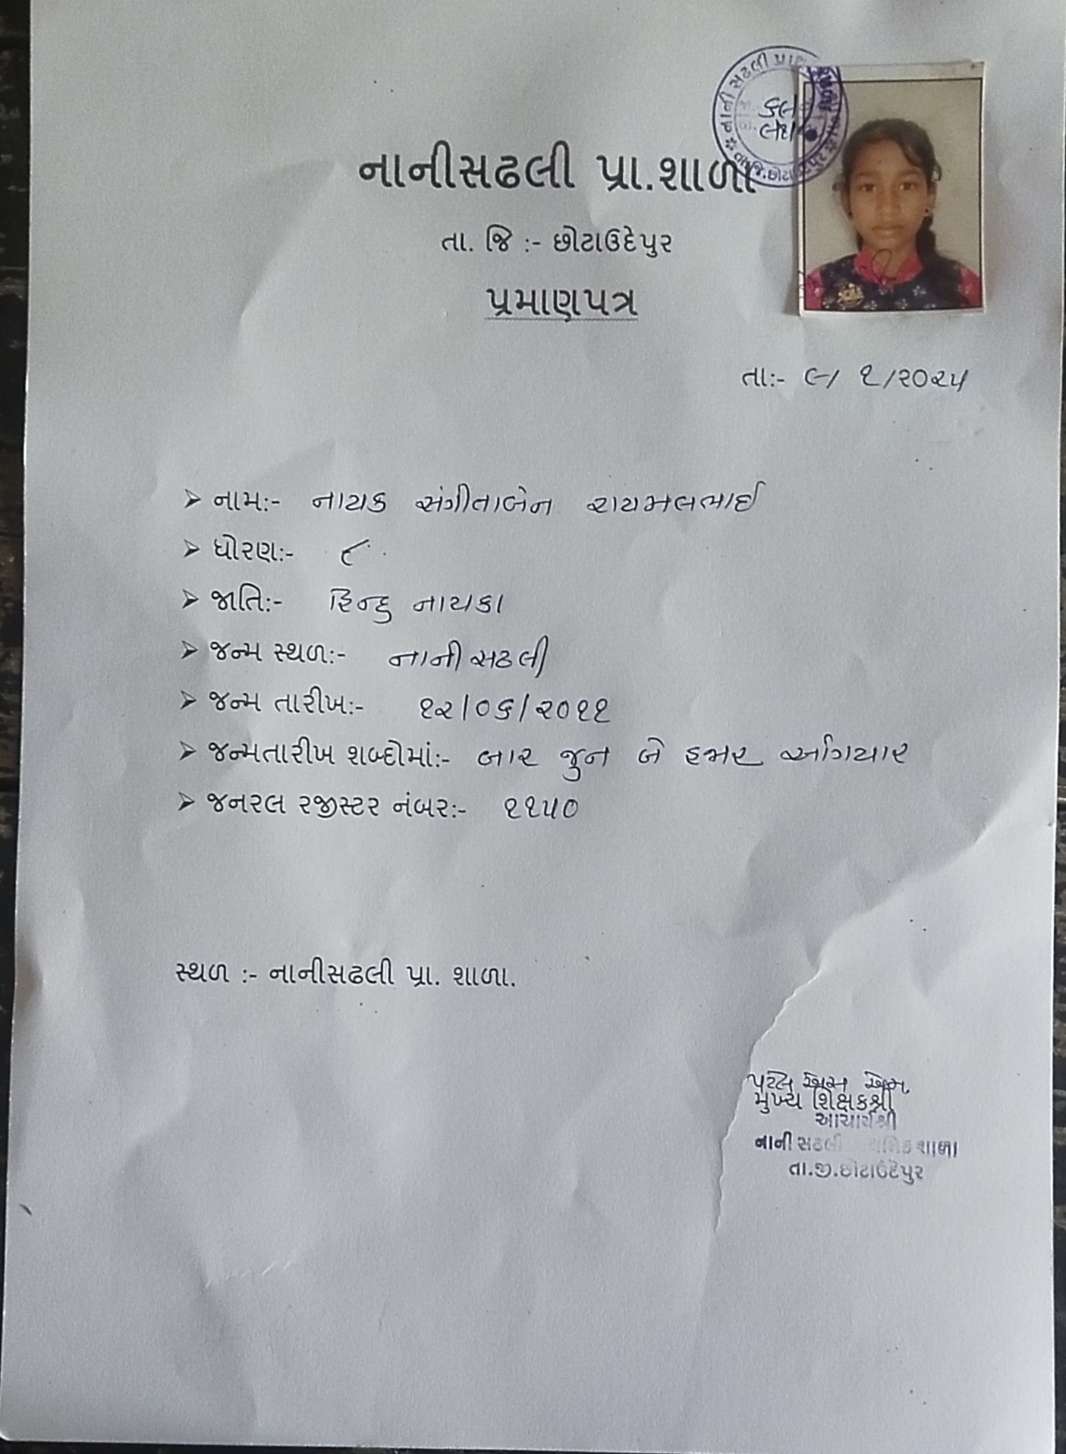 નાની સઢલી પ્રા
નાનીસઢલી પ્રા.શાળા
તા. જિ :- છોટાઉદેપુર
પ્રમાણપત્ર
તા:- ૯/ ૧/૨૦૨૫
➢ નામ:- નાયક સંગીતાબેન રાયમલભાઈ
➢ ધોરણ:- ૮
➢ જાતિ:- હિન્દુ નાયકા
➢ જન્મ સ્થળ:- નાની સઢલી
➢ જન્મ તારીખ:- ૧૨/૦૬/૨૦૧૧
➢ જન્મતારીખ શબ્દોમાં:- બાર જુન બે હજાર અગિયાર
➢ જનરલ રજીસ્ટર નંબર:- ૧૧૫૦
સ્થળ :- નાનીસઢલી પ્રા. શાળા.
પટેલ એસ એમ
મુખ્ય શિક્ષકશ્રી
આચાર્યશ્રી
નાની સઢલી શાળા
તા.જી.છોટાઉદેપુર